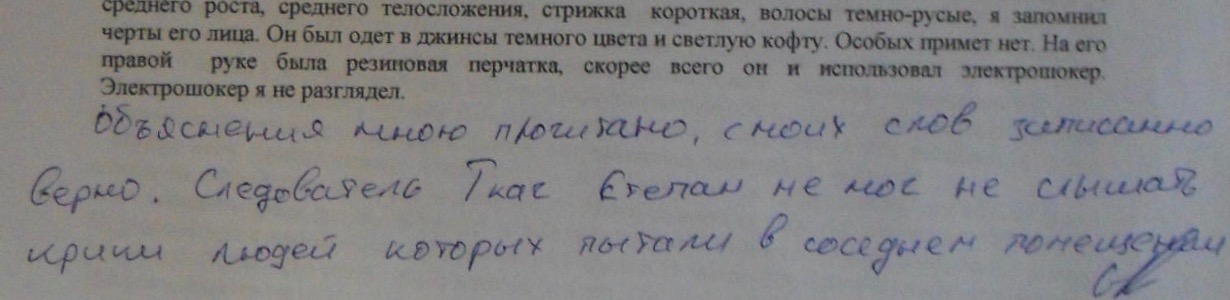 среднего роста, среднего телосложения, стрижка короткая, волосы темно-русые, я запомнил
черты его лица. Он был одет в джинсы темного цвета и светлую кофту. Особых примет нет. На его
правой руке была резиновая перчатка, скорее всего он и использовал электрошокер.
Электрошокер я не разглядел.
Объяснения мною прочитано, с моих слов записанно
верно. Следователь Ткач Степан не мог не слышать
крики людей которых пытали в соседнем помещении